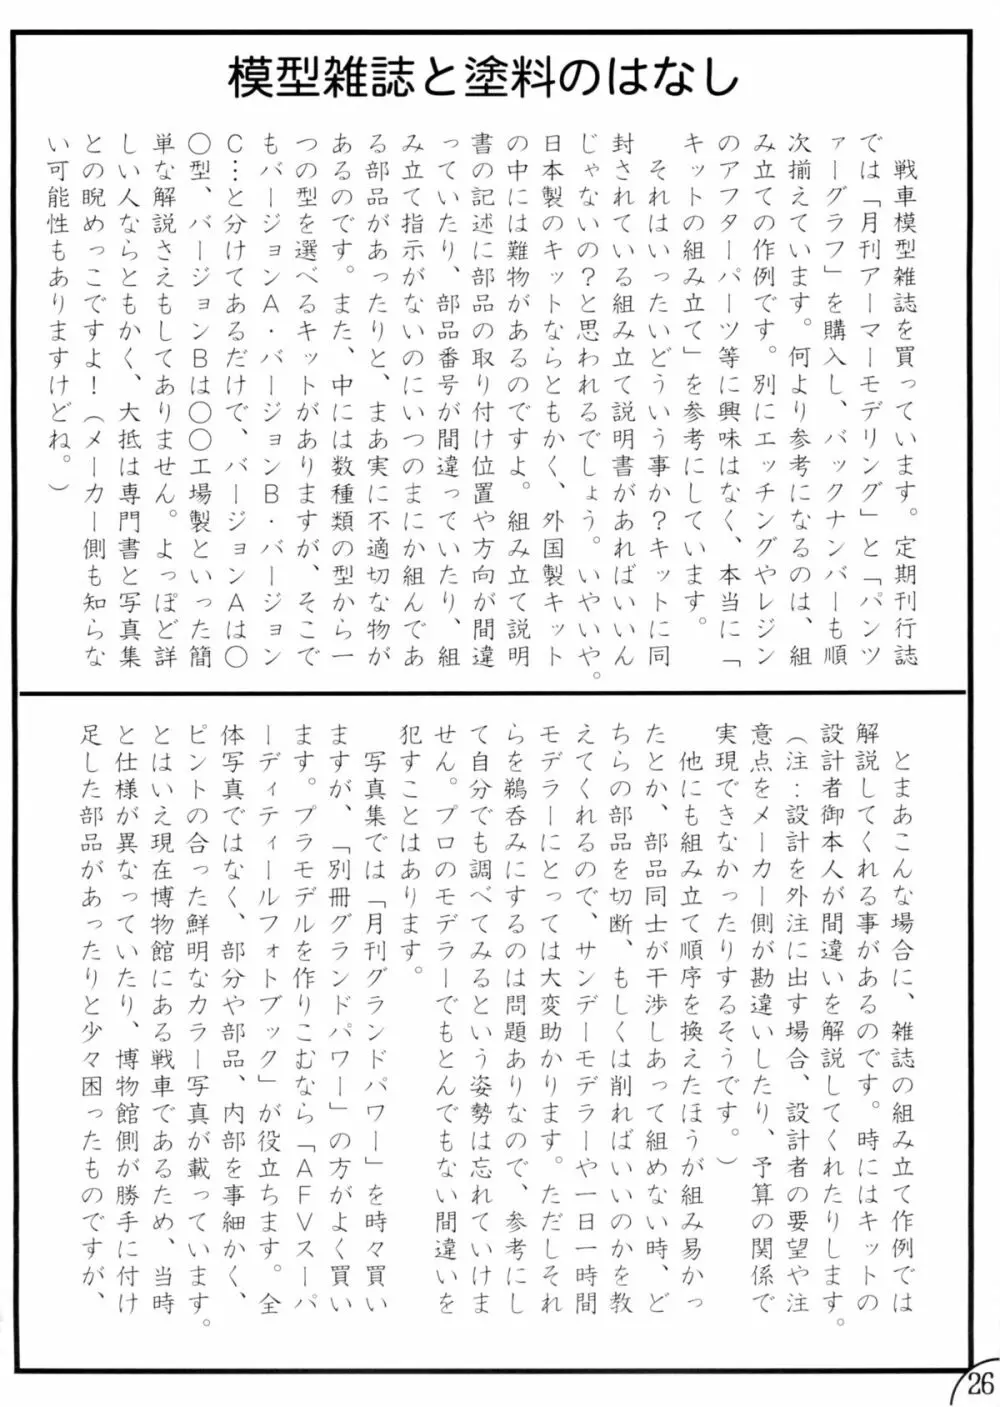 模型雑誌と塗料のはなし
　戦車模型雑誌を買っています。定期刊行誌
では「月刊アーマーモデリング」と「パンツ
ァーグラフ」を購入し、バックナンバーも順
次揃えています。何より参考になるのは、組
み立ての作例です。別にエッチングやレジン
のアフターパーツ等に興味はなく、本当に「
キットの組み立て」を参考にしています。
　それはいったいどういう事か？キットに同
封されている組み立て説明書があればいいん
じゃないの？と思われるでしょう。いやいや。
日本製のキットならともかく、外国製キット
の中には難物があるのですよ。組み立て説明
書の記述に部品の取り付け位置や方向が間違
っていたり、部品番号が間違っていたり、組
み立て指示がないのにいつのまにか組んであ
る部品があったりと、まあ実に不適切な物が
あるのです。また、中には数種類の型から一
つの型を選べるキットがありますが、そこで
もバージョンA・バージョンB・バージョン
C…と分けてあるだけで、バージョンAは〇
〇型、バージョンBは〇〇工場製といった簡
単な解説さえもしてありません。よっぽど詳
しい人ならともかく、大抵は専門書と写真集
との睨めっこですよ！（メーカー側も知らな
い可能性もありますけどね。）
　とまあこんな場合に、雑誌の組み立て作例では
解説してくれる事があるのです。時にはキットの
設計者御本人が間違いを解説してくれたりします。
（注：設計を外注に出す場合、設計者の要望や注
意点をメーカー側が勘違いしたり、予算の関係で
実現できなかったりするそうです。）
　他にも組み立て順序を換えたほうが組み易かっ
たとか、部品同士が干渉しあって組めない時、ど
ちらの部品を切断、もしくは削ればいいのかを教
えてくれるので、サンデーモデラーや一日一時間
モデラーにとっては大変助かります。ただしそれ
らを鵜呑みにするのは問題ありなので、参考にし
て自分でも調べてみるという姿勢は忘れていけま
せん。プロのモデラーでもとんでもない間違いを
犯すことはあります。
　写真集では「月刊グランドパワー」を時々買い
ますが、「別冊グランドパワー」の方がよく買い
ます。プラモデルを作りこむなら「AFVスーパ
ーディティールフォトブック」が役立ちます。全
体写真ではなく、部分や部品、内部を事細かく、
ピントの合った鮮明なカラー写真が載っています。
とはいえ現在博物館にある戦車であるため、当時
と仕様が異なっていたり、博物館側が勝手に付け
足した部品があったりと少々困ったものですが、
26